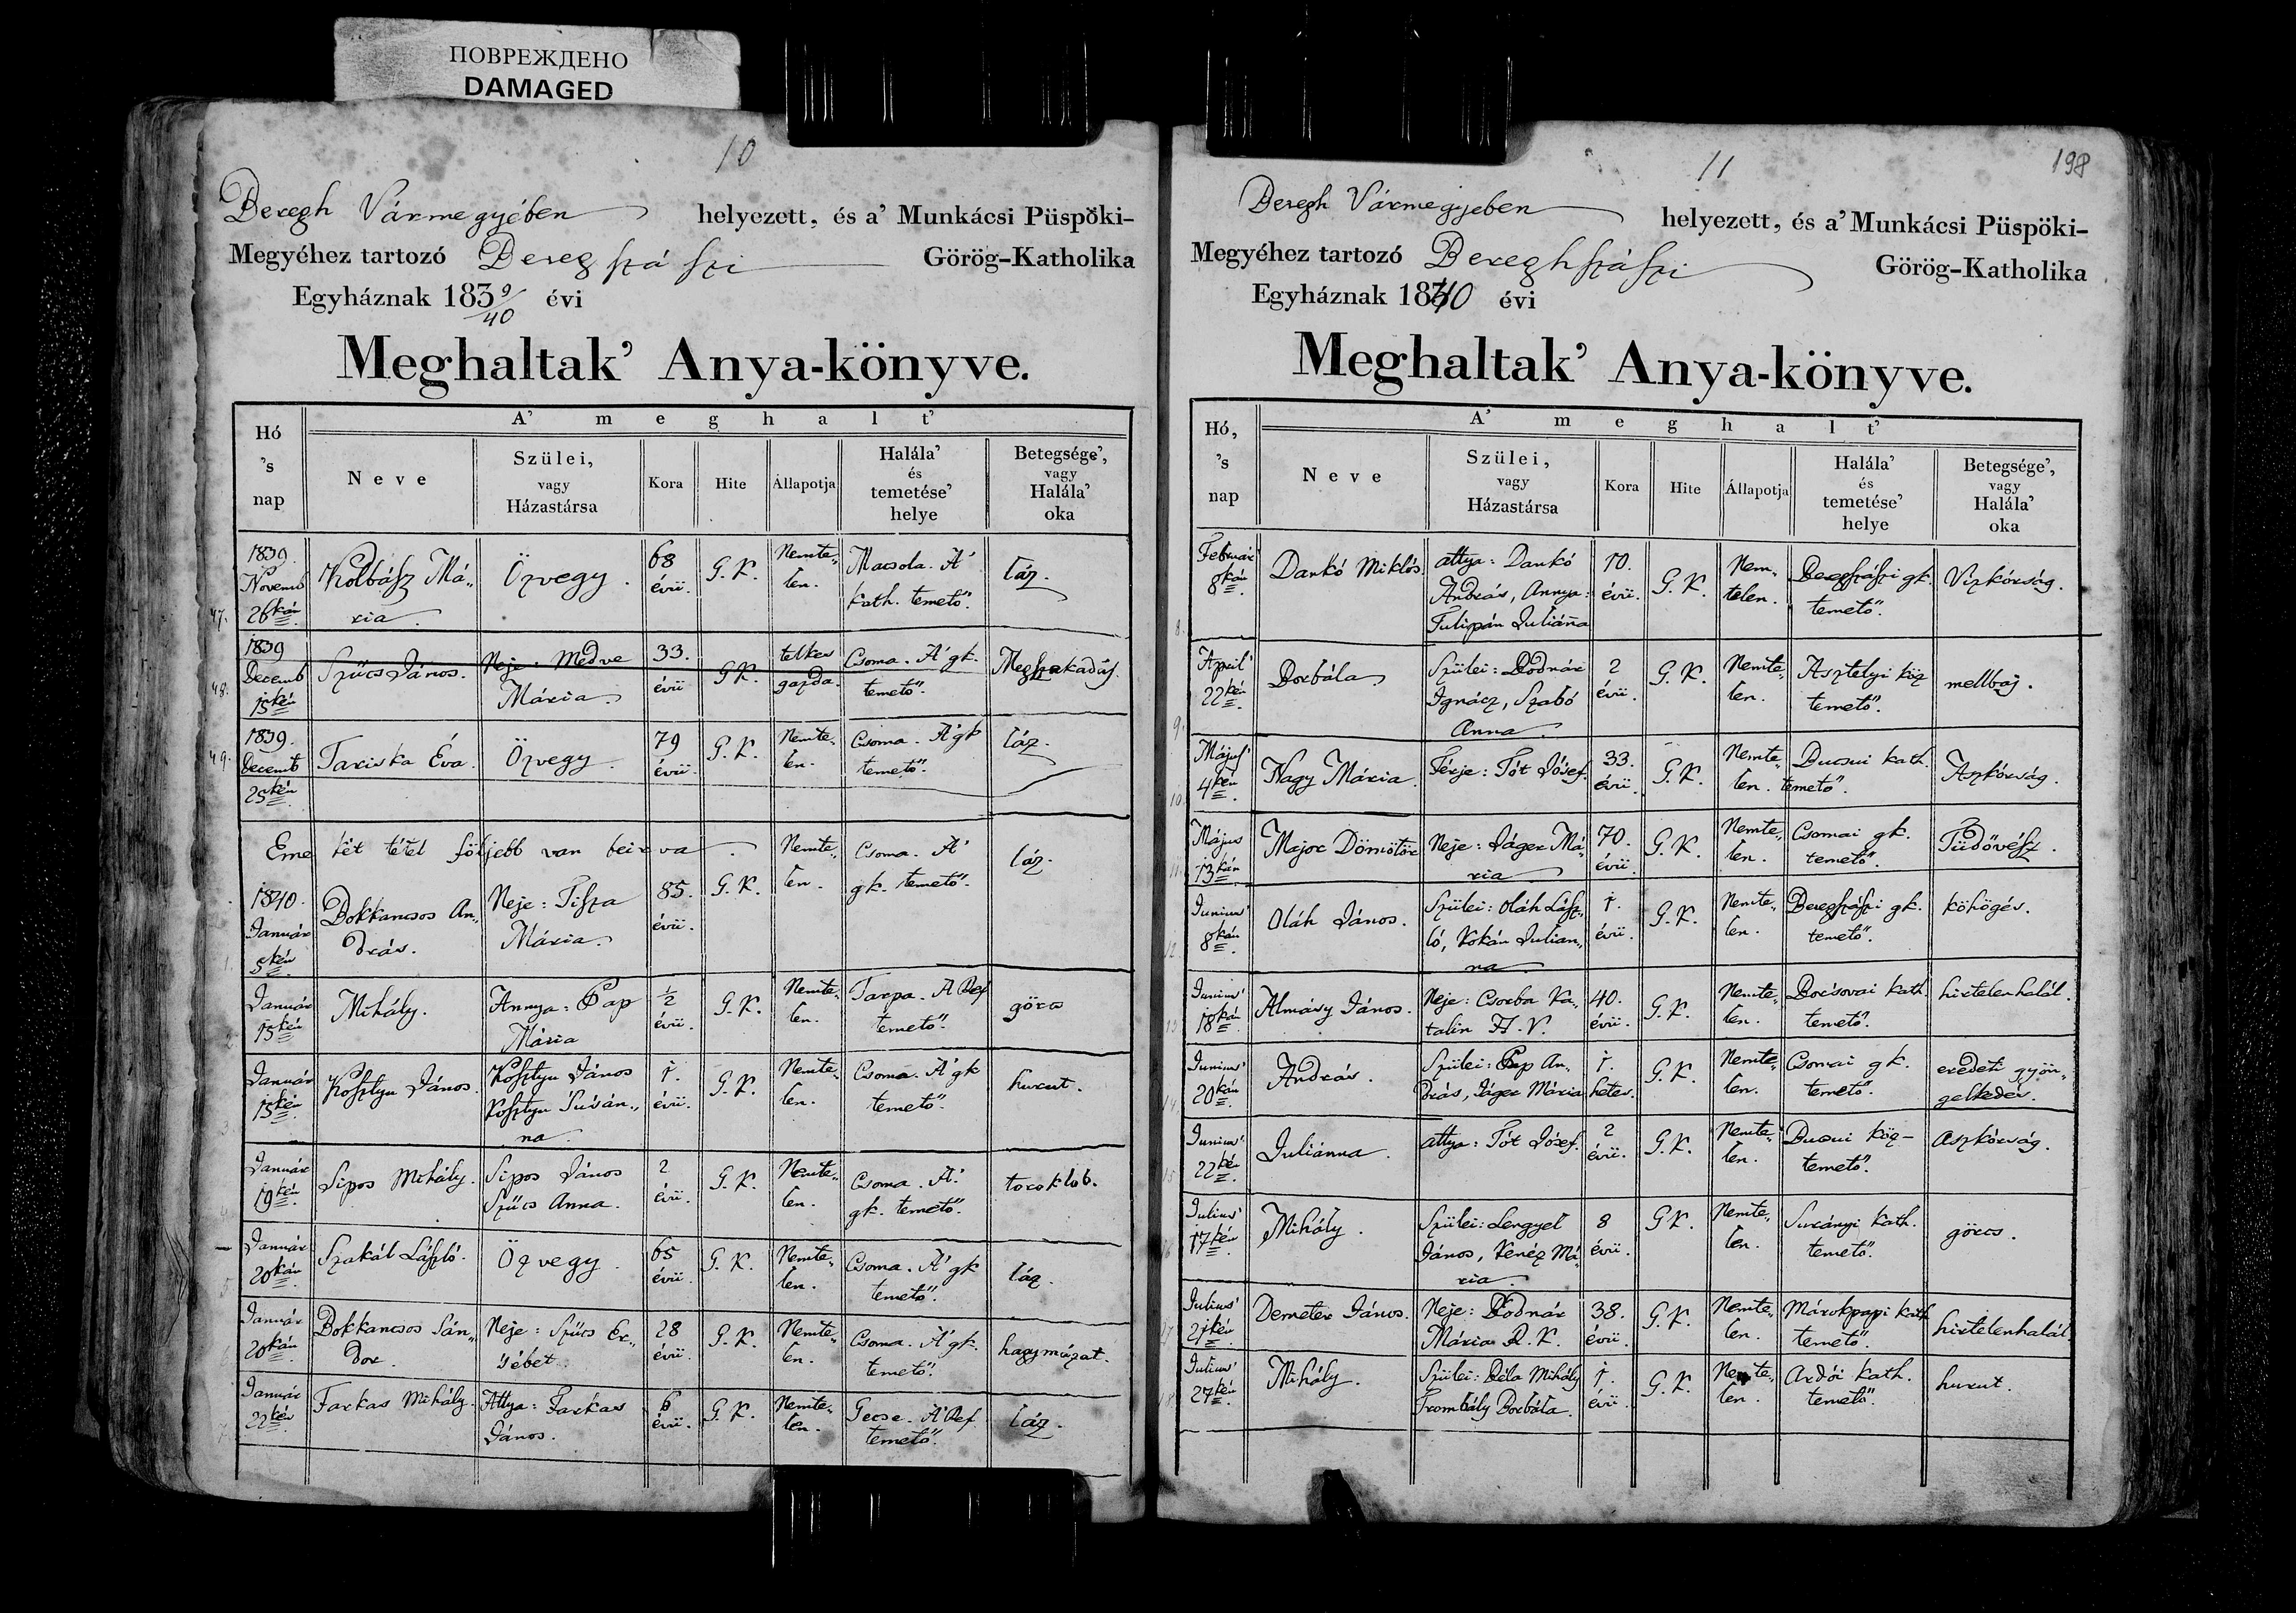 ПОВРЕЖДЕНО
DAMAGED
10
Beregh Vármegyében helyezett, és a' Munkácsi Püspöki-
Megyéhez tartozó Beregszászi Görög-Katholika
Egyháznak 1839/40 évi
Meghaltak' Anya-könyve.
Hó 's nap
A' meghalt'
Neve
Szülei, vagy Házastársa
Kora
Hite
Állapotja
Halála' és temetése' helye
Betegsége', vagy Halála' oka
47. 1839. Novemb 26kán Kolbász Mária. Özvegy. 68 évü. G. K. Nemtelen. Macsola. A' kath. temető. láz.
48. 1839 Decemb 15kén Szücs János. Neje: Medve Mária. 33. évü G. K. telkes gazda. Csoma. A' gk. temető.
49. 1839. Decemb 25kén Tariska Éva. Özvegy. 79 évü. G. K. Nemtelen. Csoma. A' gk temető. láz.
Eme két tétel följebb van beirva.
1. 1840. Január 5kén Bokkancsos András. Neje: Tisza Mária. 85. évü. G. K. Nemtelen. Csoma. A' gk. temető. láz.
2 Január 15kén Mihály. Annya: Pap Mária ½ évü. G. K. Nemtelen. Tarpa. A Ref temető. görcs
3 Január 15kén Kosztyu János. Kosztyu János Kosztyu Susánna. 1. évü. G. K. Nemtelen. Csoma. A' gk temető. hurut.
Január 19kén Sipos Mihály. Sipos János Szücs Anna. 2 évü. G. K. Nemtelen. Csoma. A' gk. temető. toroklob.
5 Január 20kán Szakál László. Özvegy. 65 évü. G. K. Nemtelen. Csoma. A' gk temető. láz.
Január 20kán Bokkancsos Sándor. Neje: Szücs Ersébet. 28 évü. G. K. Nemtelen. Csoma. A' gk. temető. hagymázat.
Január 22kén Farkas Mihály. Attya: Farkas János. 6 évü. G. K. Nemtelen. Gecse. A' Ref temető. láz.
11
198
Beregh Vármegyében helyezett, és a' Munkácsi Püspöki-
Megyéhez tartozó Bereghszászi Görög-Katholika
Egyháznak 1840 évi
Meghaltak' Anya-könyve.
Hó, 's nap
A' meghalt'
Neve
Szülei, vagy Házastársa
Kora
Hite
Állapotja
Halála' és temetése' helye
Betegsége', vagy Halála' oka
8. Február 8kán Dankó Miklós. attya: Dankó András, Annya: Tulipán Juliánna 10. évü. G. K. Nemtelen. Beregszászi gk. temető. Vizkórság.
9. April' 22kén Borbála. Szülei: Bodnár Ignácz, Szabó Anna. 2 évü. G. K. Nemtelen. Asztelyi köz temető. mellbaj.
10. Május' 4kén Nagy Mária. Férje: Tót Jósef. 33. évü. G. K. Nemtelen. Bucsui kath. temető. Aszkórság.
11. Május 13kán Major Dömötör Neje: Jáger Mária 70. évü. G. K. Nemtelen. Csomai gk. temető. Tüdővész.
12 Junius' 8kán Oláh János. Szülei: Oláh László, Kokán Julianna 1. évü. G. K. Nemtelen. Beregszászi gk. temető. köhögés.
13 Junius' 18kán Almásy János. Neje: Csorba Katalin H. V. 40. évü. G. K. Nemtelen. Borsovai kath. temető. hirtelenhalál.
14. Junius' 20kán András. Szülei: Pap András, Jáger Mária 1. hetes. G. K. Nemtelen. Csomai gk. temető. eredeti gyöngelkedés.
15 Junius' 22kén Juliánna. attya: Tót Jósef. 2 évü. G. K. Nemtelen. Bucsui köz-temető. Aszkórság.
16 Julius' 17kén Mihály. Szülei: Lengyel János, Kenéz Mária 8 évü. G. K. Nemtelen. Surányi kath. temető. görcs.
17 Julius' 21kén Demeter János. Neje: Bodnár Mária R. K. 38. évü. G. K. Nemtelen. Márokpapi kath temető. hirtelenhalál.
18 Julius' 27kén Mihály. Szülei: Béla Mihály Trombály Borbála. 1. évü. G. K. Nemtelen. Ardói kath. temető. hurut.